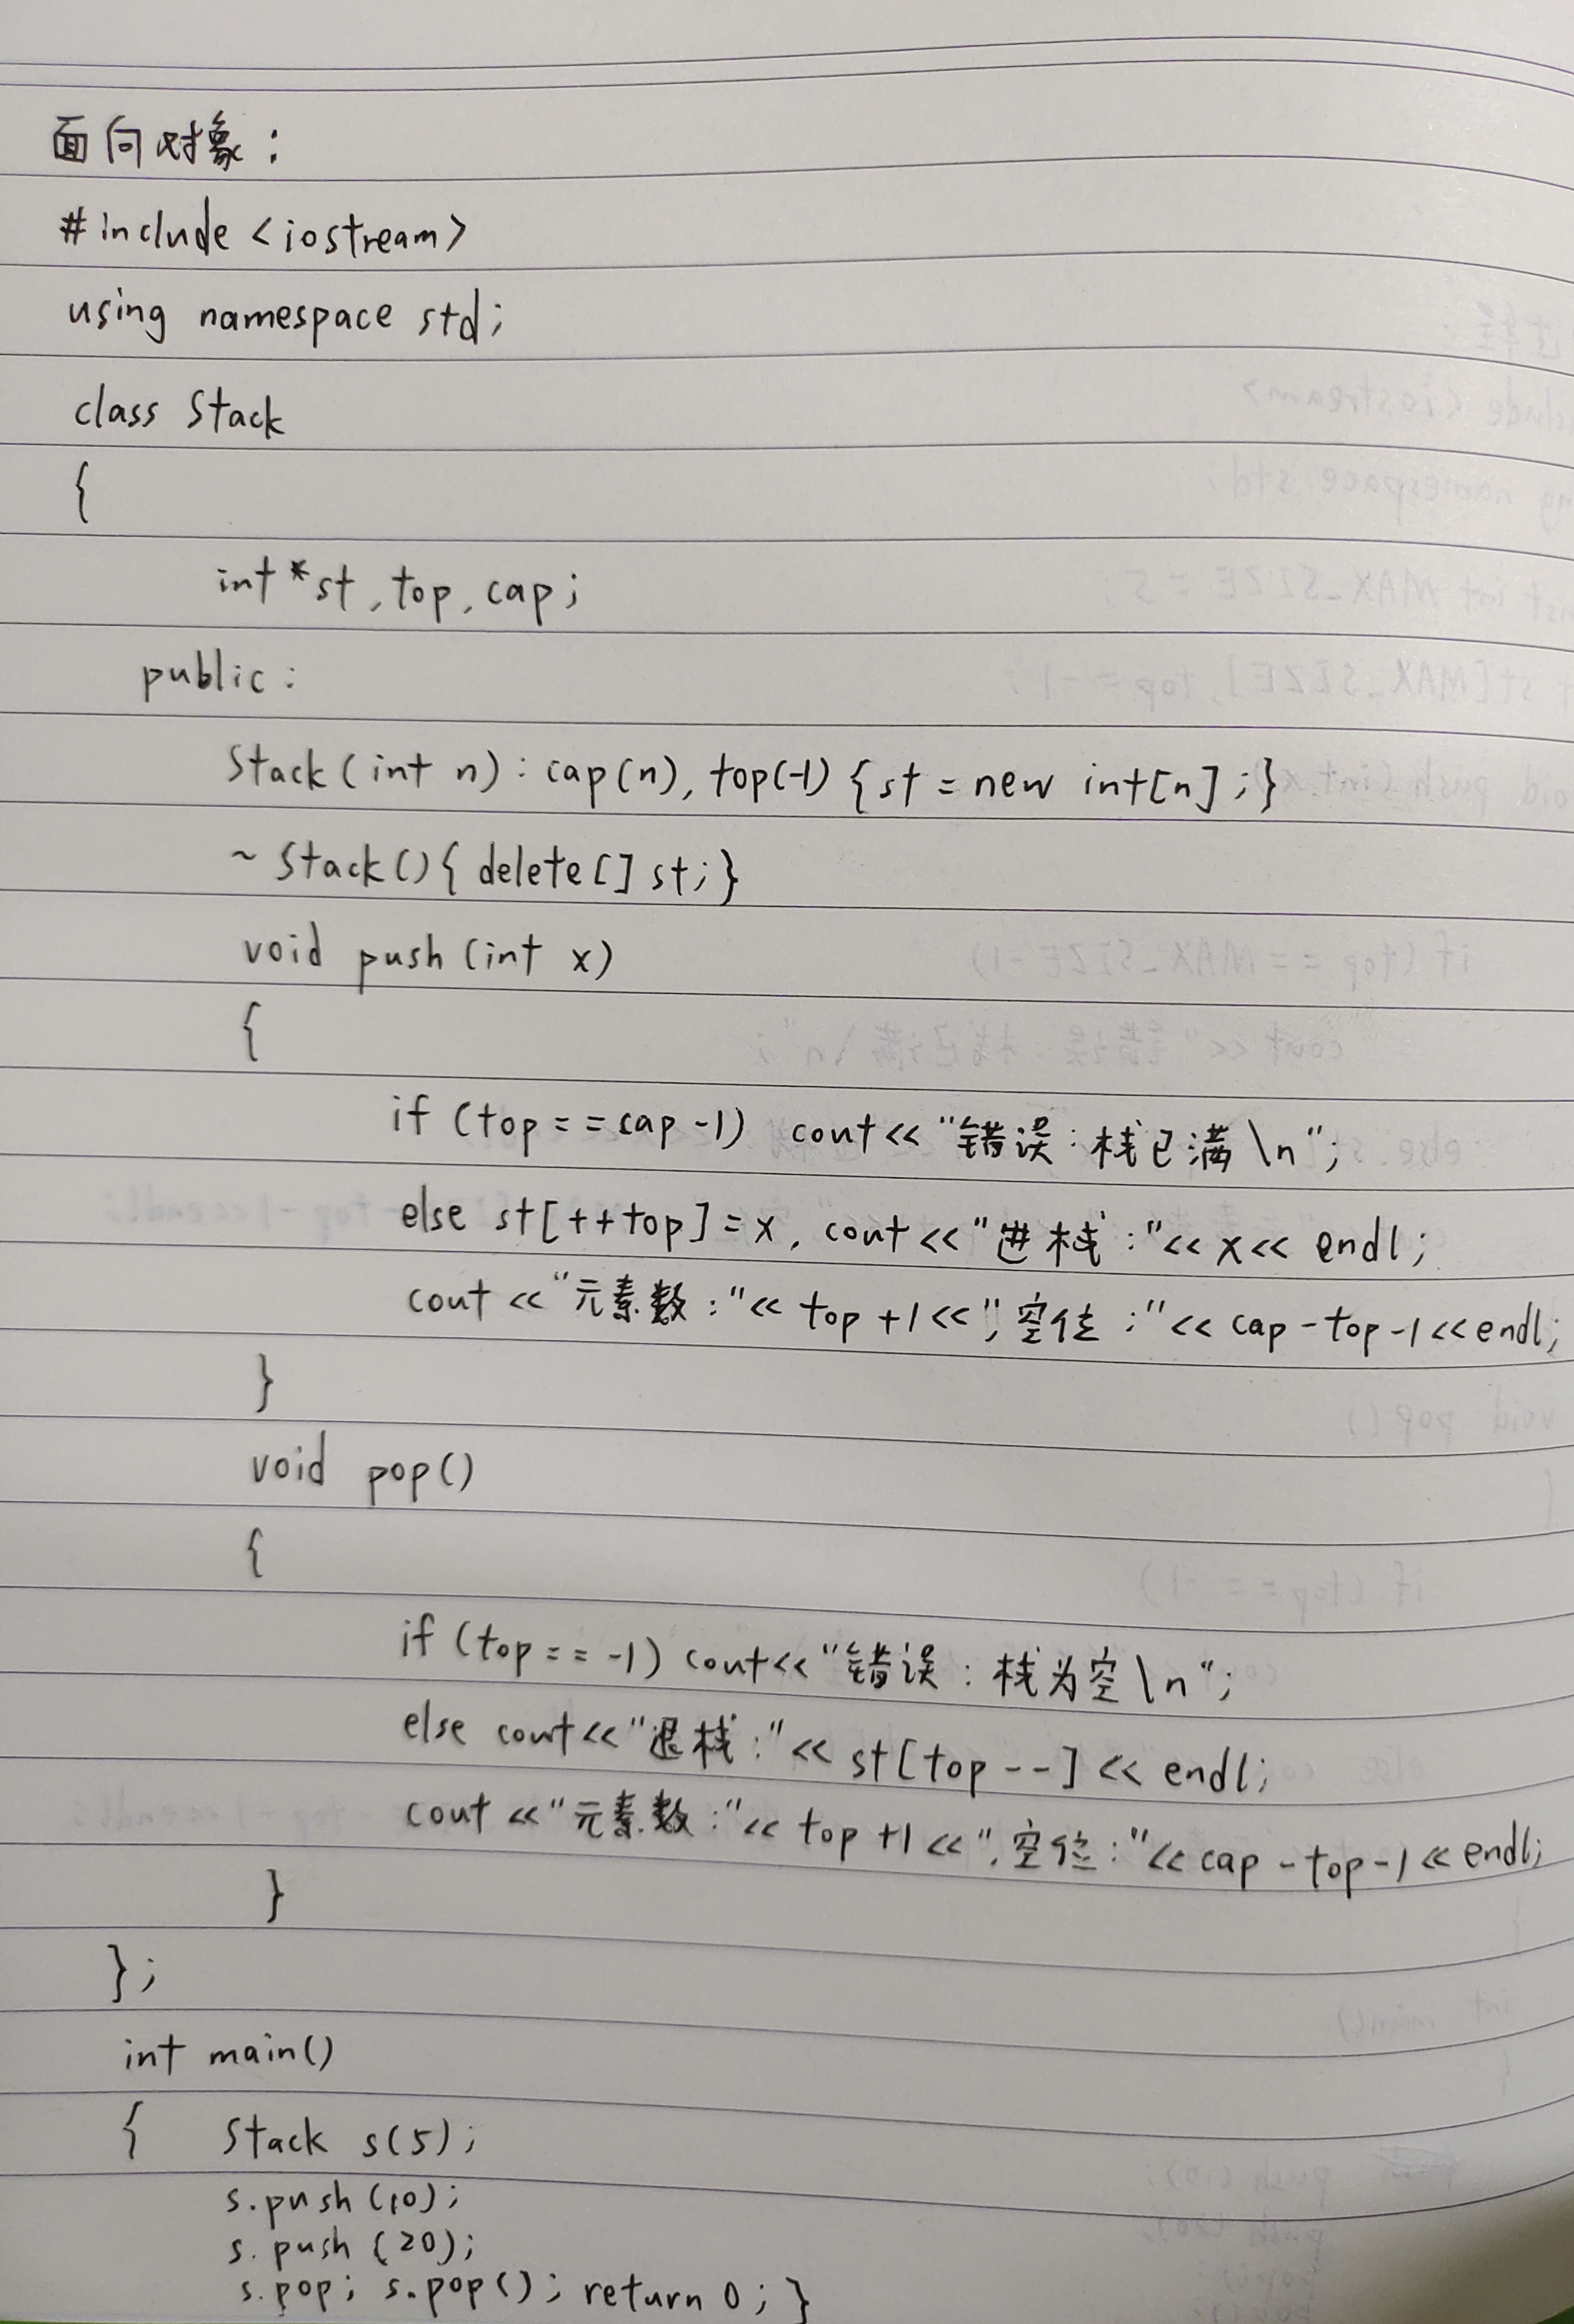 面向对象：
#include <iostream>
using namespace std;
class Stack
{
int *st, top, cap;
public:
Stack(int n): cap(n), top(-1) {st = new int[n];}
~Stack(){ delete[] st;}
void push(int x)
{
if (top == cap -1) cout << "错误：栈已满\n";
else st[++top] = x, cout << "进栈:" << x << endl;
cout << "元素数:" << top +1 << ",空位:" << cap - top -1 << endl;
}
void pop()
{
if (top == -1) cout << "错误：栈为空\n";
else cout << "退栈:" << st[top --] << endl;
cout << "元素数:" << top +1 << ",空位:" << cap - top -1 << endl;
}
};
int main()
{ Stack s(5);
s.push(10);
s.push(20);
s.pop; s.pop(); return 0; }